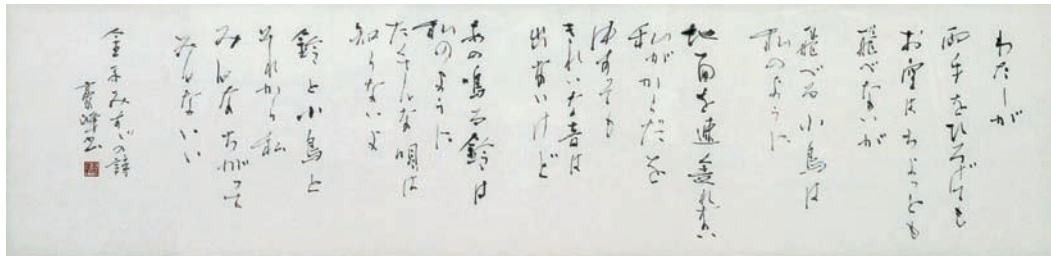 わたしが
両手をひろげても
お空はちょっとも
飛べないが
飛べる小鳥は
私のように
地面を速く走れない
私がからだを
ゆすっても
きれいな音は
出ないけど
あの鳴る鈴は
私のように
たくさんな唄は
知らないよ
鈴と小鳥と
それから私
みんなちがって
みんないい
金子みすゞの詩
書